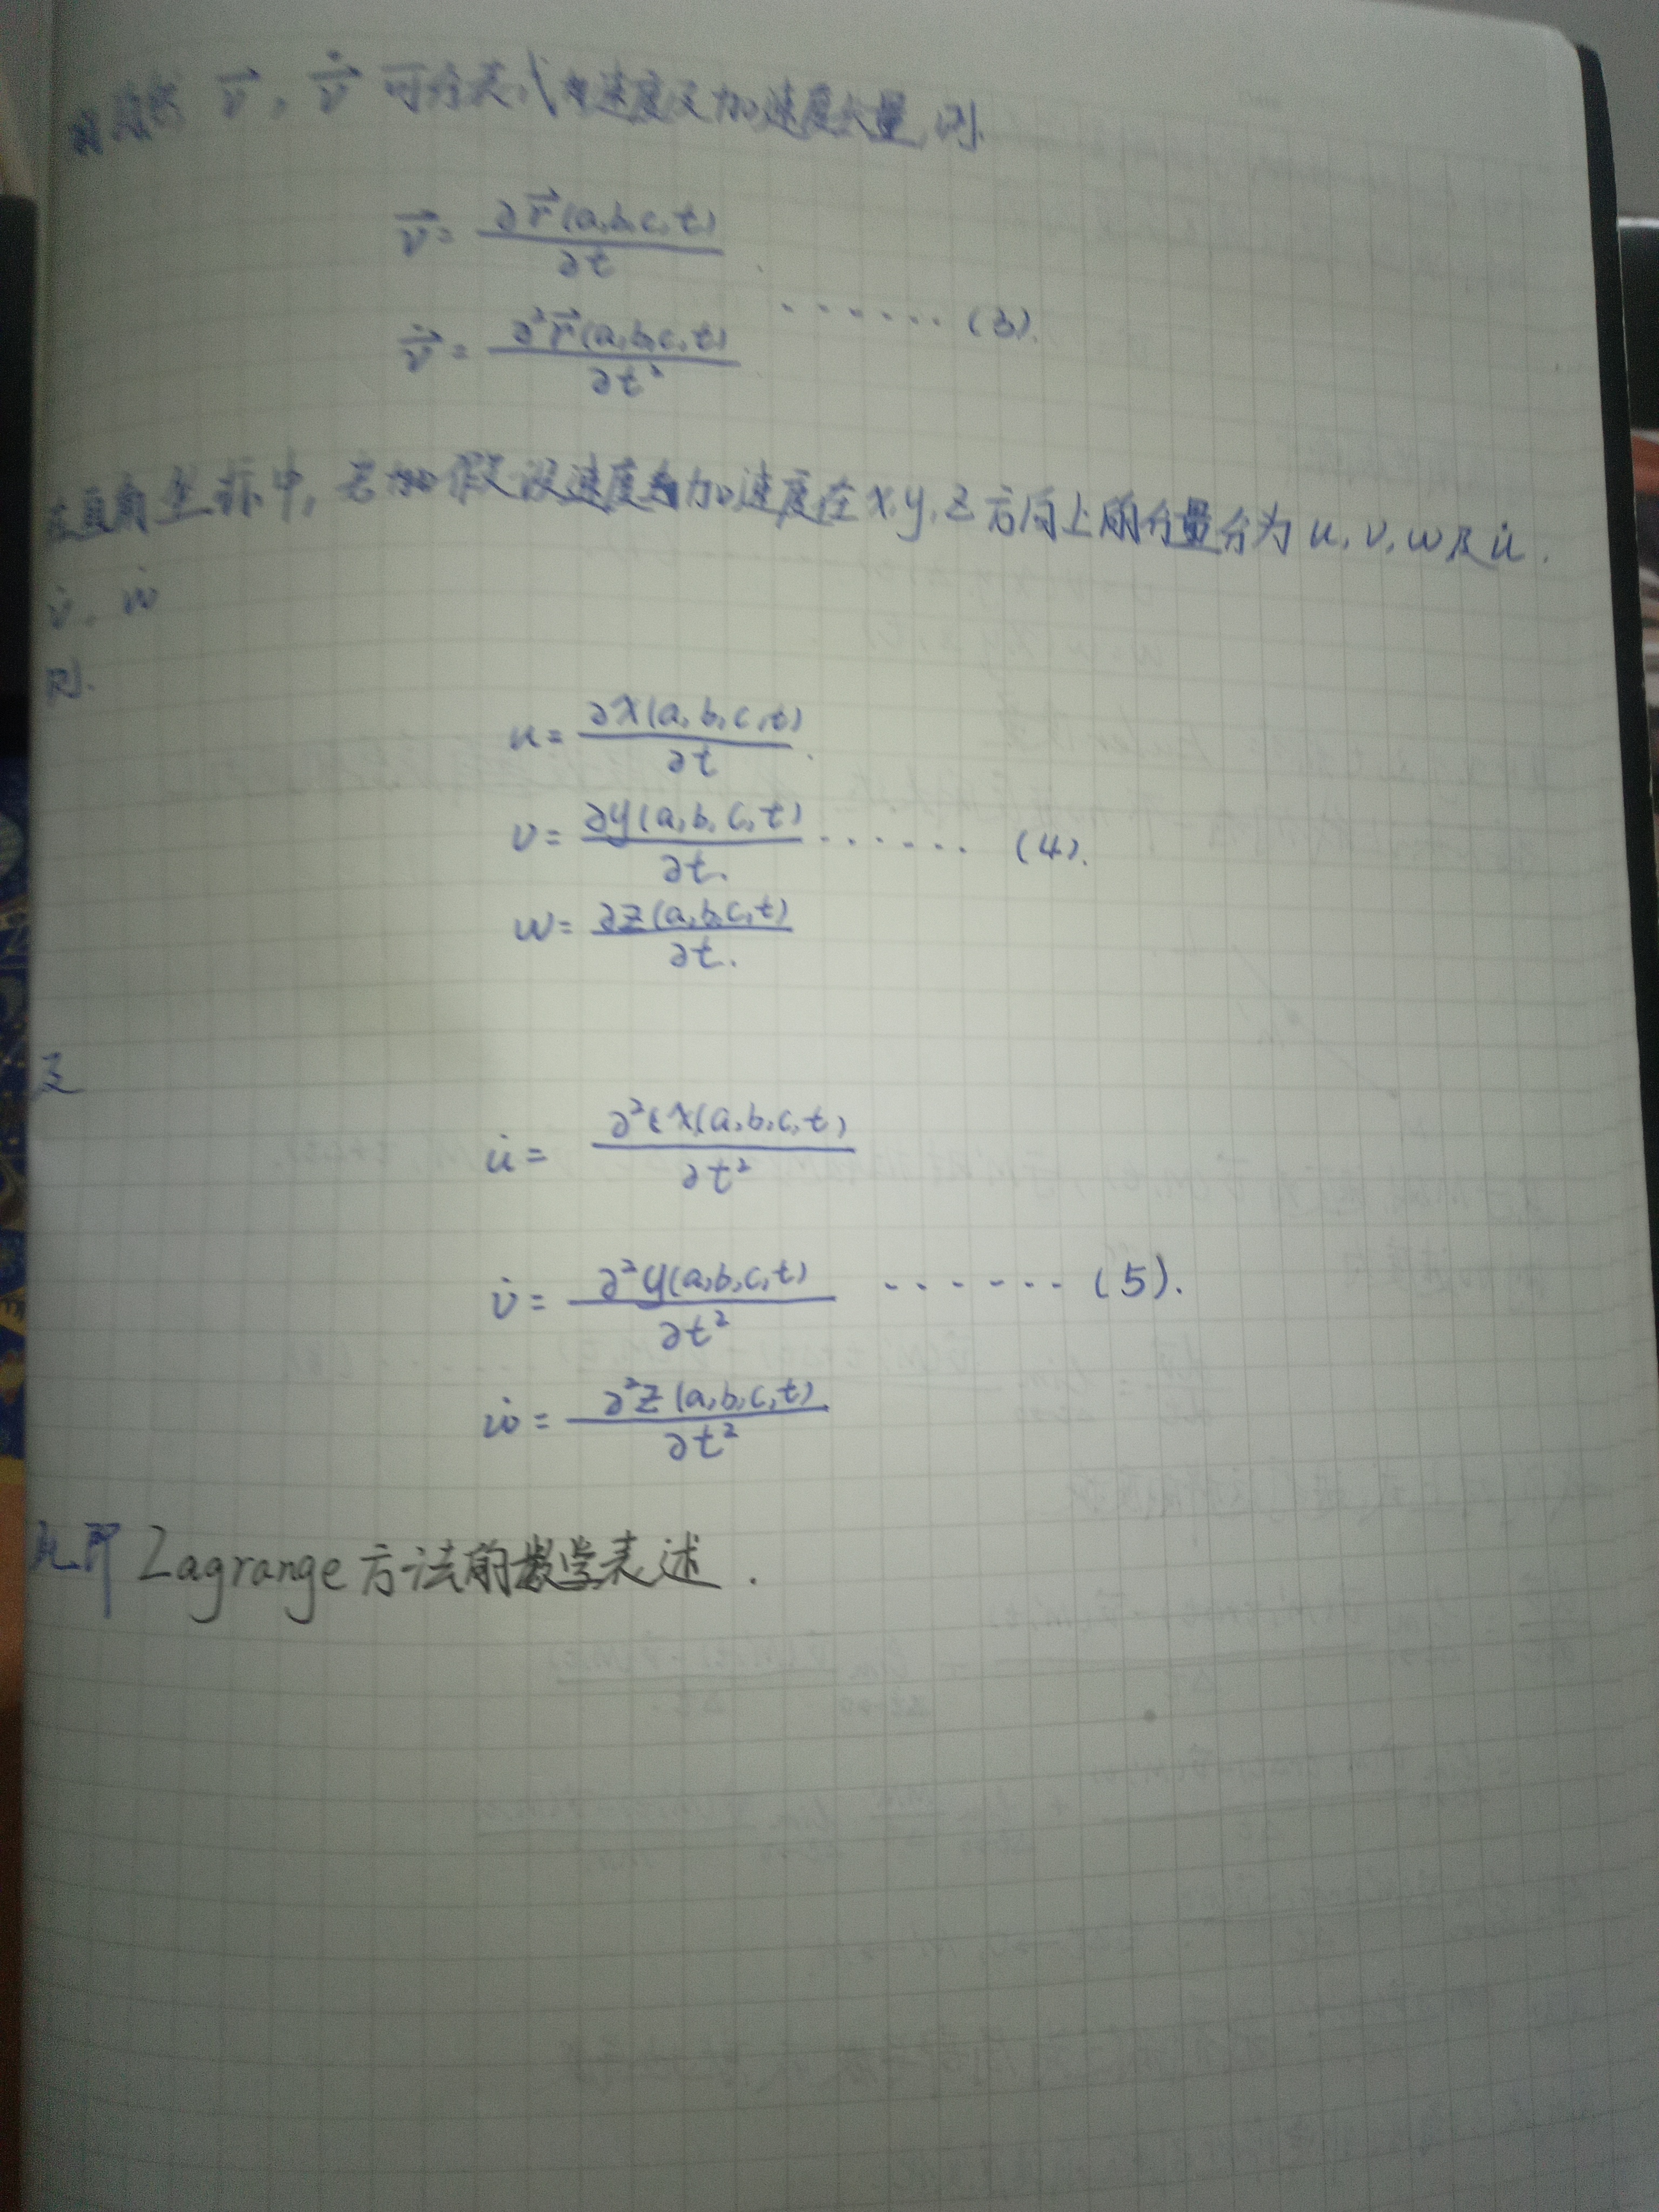 $\vec{v}$, $\dot{\vec{v}}$ 可分表 为速度及加速度大量,则.
$\vec{v} = \frac{\partial \vec{r}(a,b,c,t)}{\partial t}$
$\dot{\vec{v}} = \frac{\partial^2 \vec{r}(a,b,c,t)}{\partial t^2}$ ······ (3).
在直角坐标中, 若 假设速度 加速度在 x, y, z 方向上的分量分为 u, v, w 及 $\dot{u}$.
$\dot{v}$. $\dot{w}$
则.
$u = \frac{\partial x(a,b,c,t)}{\partial t}$.
$v = \frac{\partial y(a,b,c,t)}{\partial t.}$ ······ (4).
$w = \frac{\partial z(a,b,c,t)}{\partial t.}$
及
$\dot{u} = \frac{\partial^2 x(a,b,c,t)}{\partial t^2}$
$\dot{v} = \frac{\partial^2 y(a,b,c,t)}{\partial t^2}$ ······ (5).
$\dot{w} = \frac{\partial^2 z(a,b,c,t)}{\partial t^2}$
此即 Lagrange 方法的数学表述.